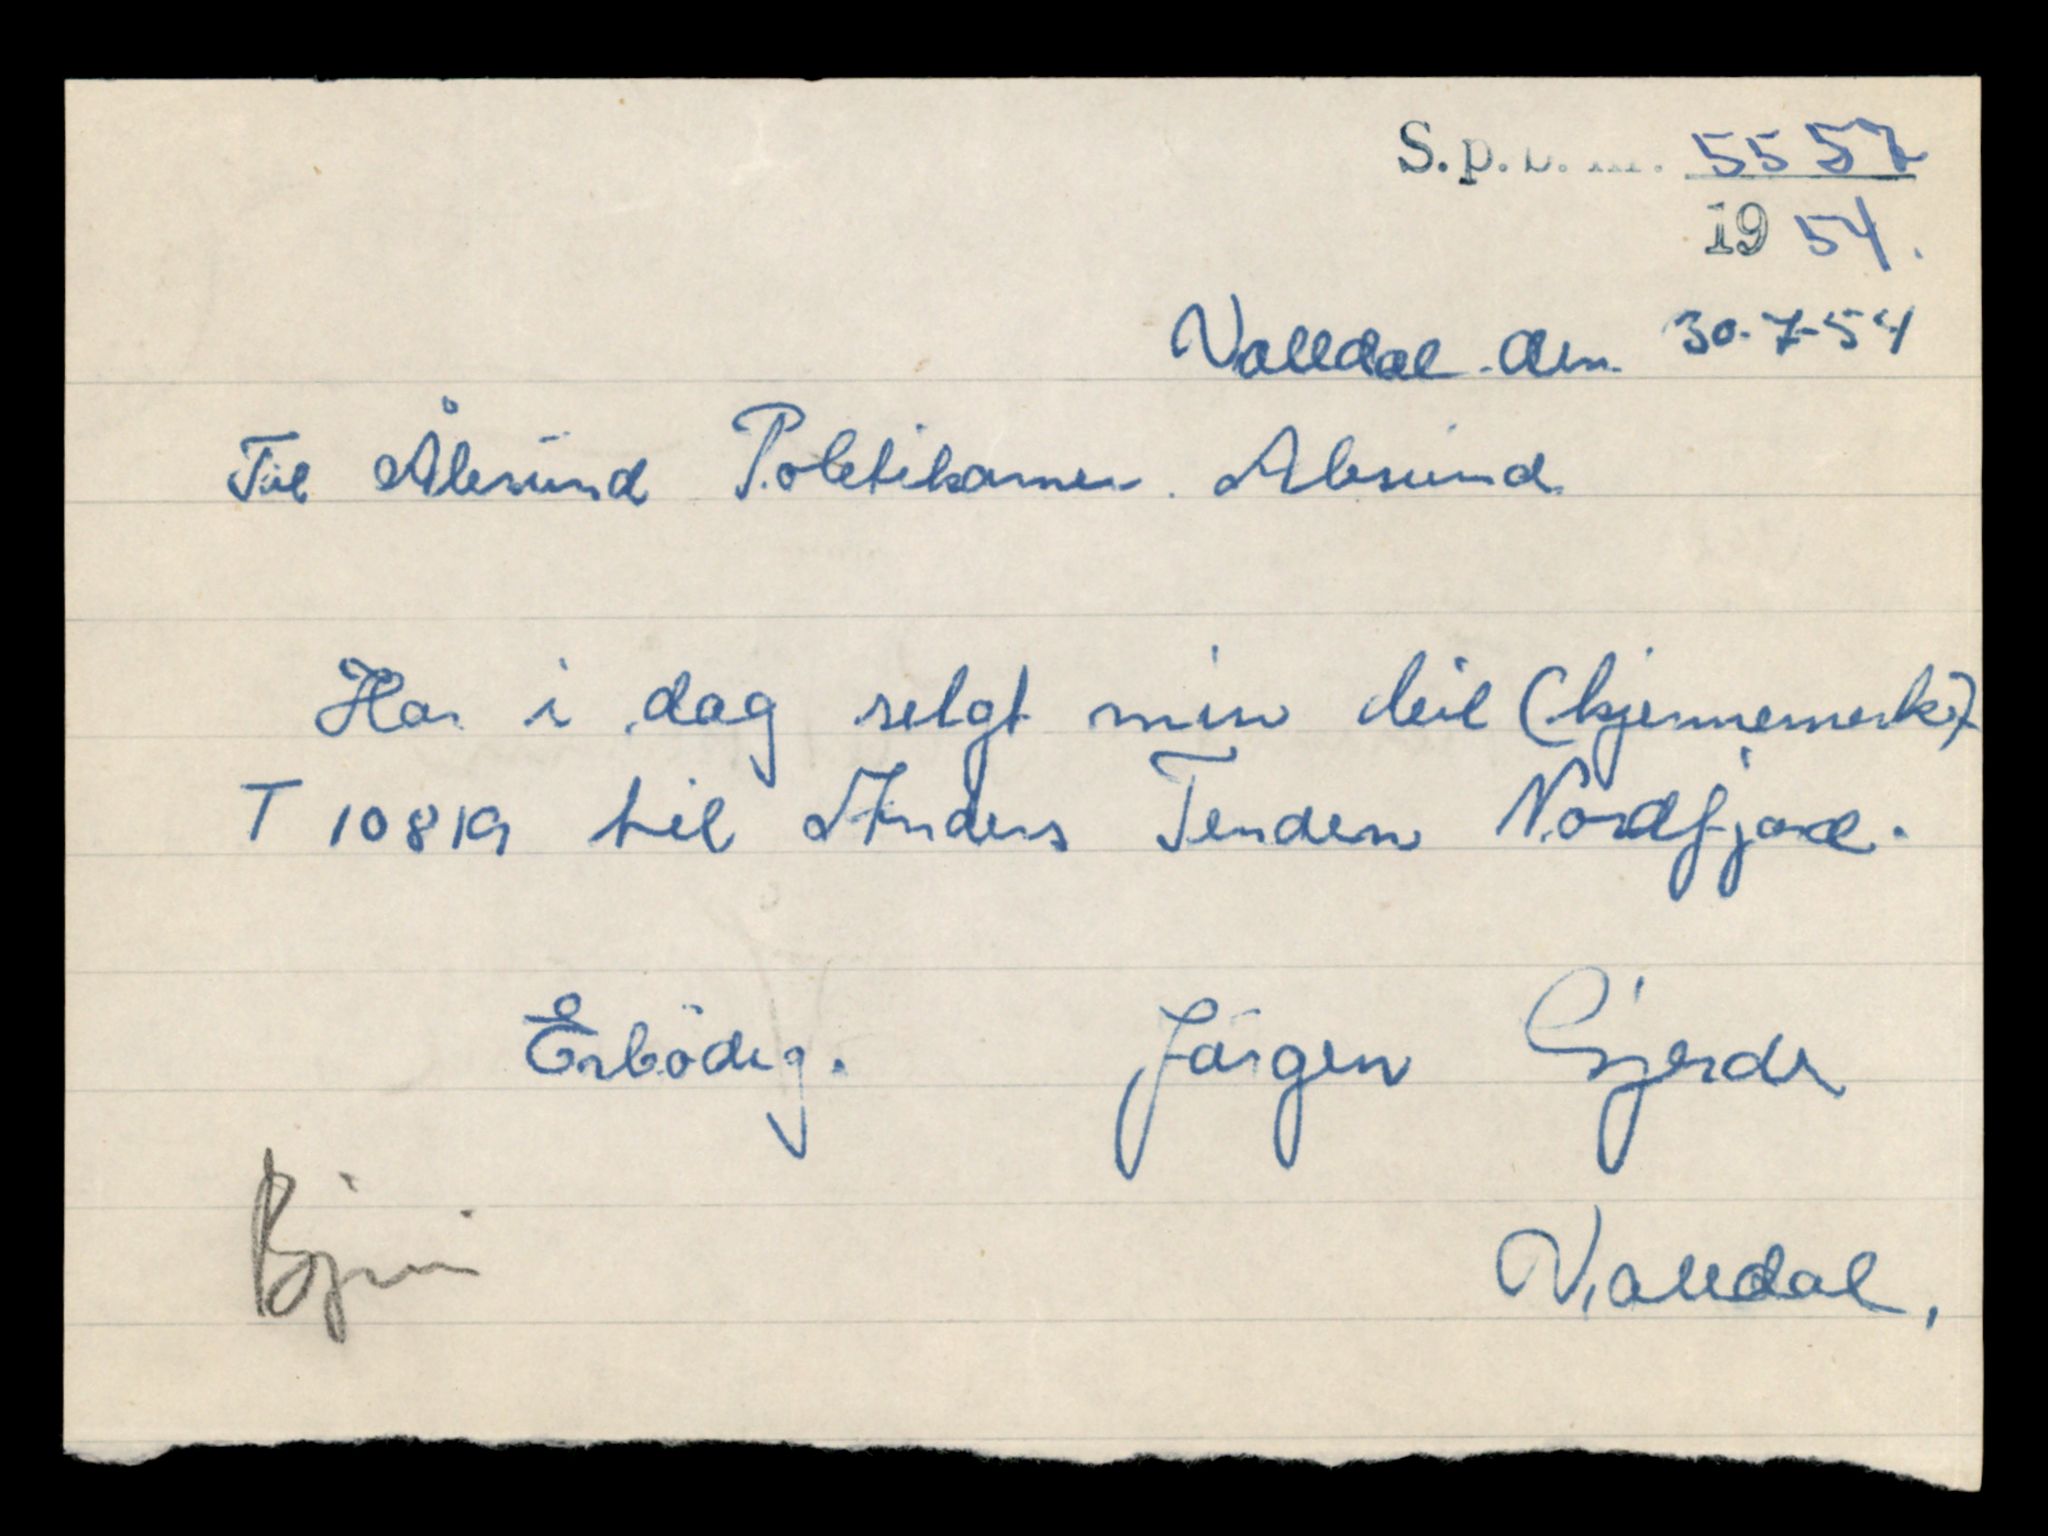 S.p. 5557
1954.
Valldal den 30-7-54
Til Ålesund Politikamer. Alesund
Har i dag selgt min bil (kjennemerk)
T 10819 til Anders Tenden Nordfjord.
Erbödig. Jörgen Gjerde
Valldal,